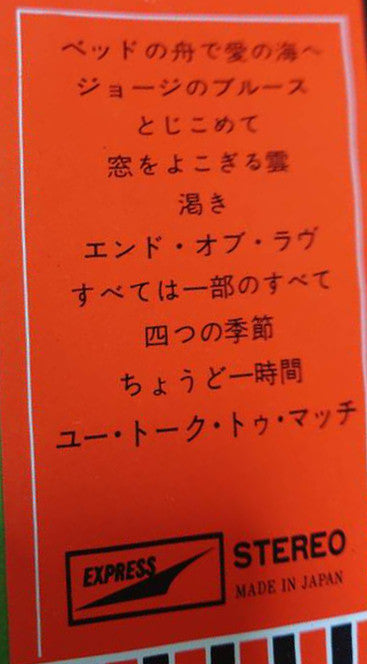 ベッドの舟で愛の海へ
ジョージのブルース
とじこめて
窓をよこぎる雲
渇き
エンド・オブ・ラヴ
すべては一部のすべて
四つの季節
ちょうど一時間
ユー・トーク・トゥ・マッチ
EXPRESS
STEREO
MADE IN JAPAN